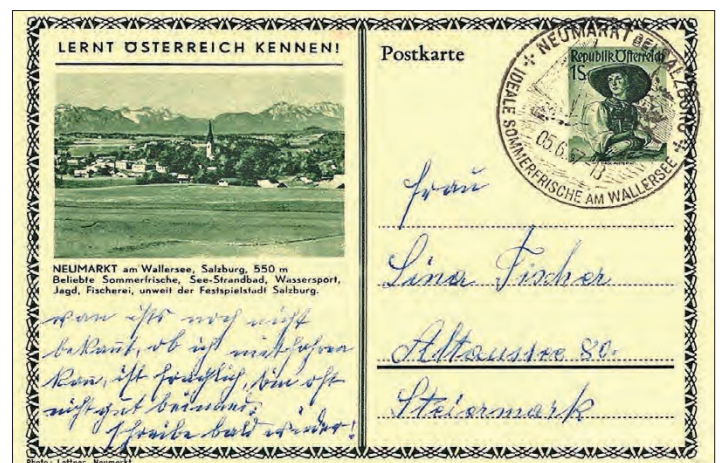 LERNT ÖSTERREICH KENNEN!
NEUMARKT am Wallersee, Salzburg, 550 m
Beliebte Sommerfrische, See-Strandbad, Wassersport,
Jagd, Fischerei, unweit der Festspielstadt Salzburg.
wan ists noch nicht
bekannt, ob ich mitfahren
kan, ist fraglich, bin oft
nicht gut beinand.
Schreibe bald wieder!
Photo: Lottner, Neumarkt
Postkarte
NEUMARKT BEI SALZBURG
IDEALE SOMMERFRISCHE AM WALLERSEE
05.6.
Republik Österreich
1S
Frau
Lina Fischer
Altaussee 80.
Steiermark